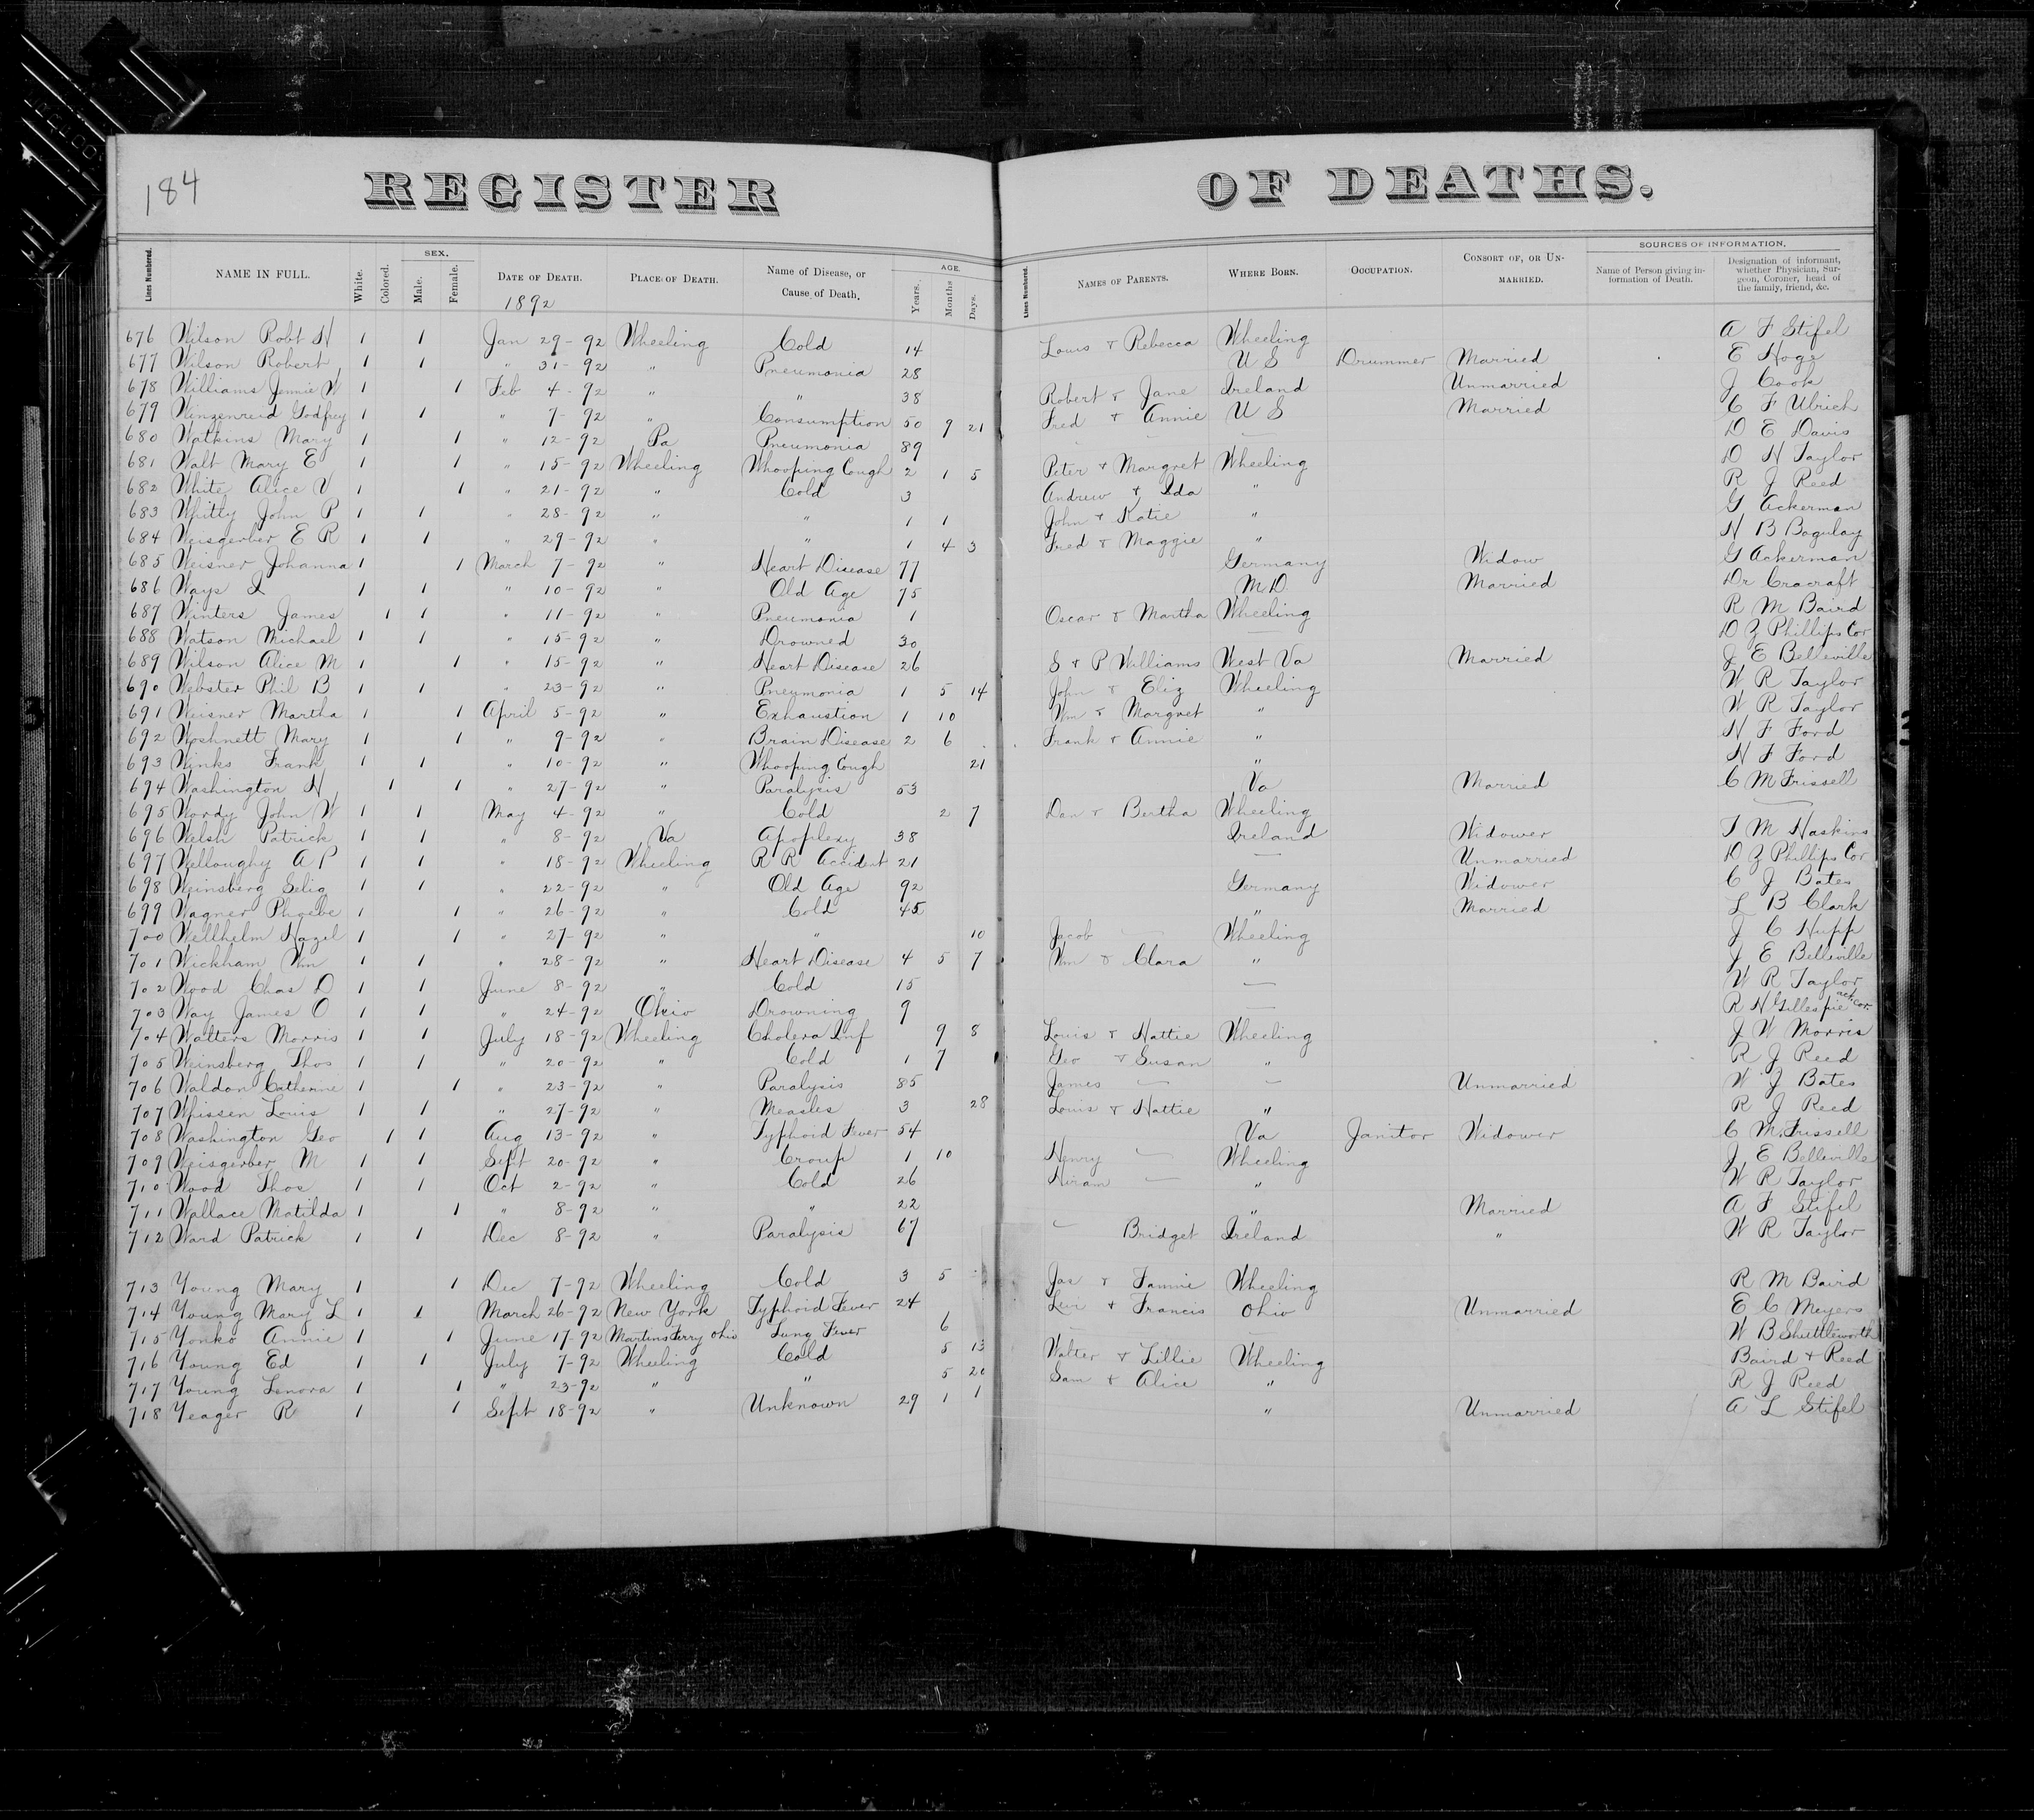 184
REGISTER OF DEATHS.
Lines Numbered. NAME IN FULL. White. Colored. SEX. Male. Female. DATE OF DEATH. PLACE OF DEATH. Name of Disease, or Cause of Death. AGE. Years. Months Days. Lines Numbered. NAMES OF PARENTS. WHERE BORN. OCCUPATION. CONSORT OF, OR UNMARRIED. SOURCES OF INFORMATION. Name of Person giving information of Death. Designation of informant, whether Physician, Surgeon, Coroner, head of the family, friend, &c.
1892
676 Wilson Robt H 1 1 Jan 29-92 Wheeling Cold 14 Louis & Rebecca Wheeling A F Stifel
677 Wilson Robert 1 1 " 31-92 " Pneumonia 28 U S Drummer Married E Hoge
678 Williams Jennie W 1 1 Feb 4-92 " " 38 Robert & Jane Ireland Unmarried J Cook
679 Winzenreid Godfrey 1 1 " 7-92 " Consumption 50 9 21 Fred & Annie U S Married C F Ulrich
680 Watkins Mary 1 1 " 12-92 Pa Pneumonia 89 D E Davis
681 Walt Mary E 1 1 " 15-92 Wheeling Whooping Cough 2 1 5 Peter & Margret Wheeling D H Taylor
682 White Alice V 1 1 " 21-92 " Cold 3 Andrew & Ida " R J Reed
683 Whitty John P 1 1 " 28-92 " " 1 1 John & Katie " G Ackerman
684 Weisgerber E R 1 1 " 29-92 " " 1 4 3 Fred & Maggie " H B Bagulay
685 Weisner Johanna 1 1 March 7-92 " Heart Disease 77 Germany Widow G Ackerman
686 Ways L 1 1 " 10-92 " Old Age 75 M.D. Married Dr Cracraft
687 Winters James 1 1 " 11-92 " Pneumonia 1 Oscar & Martha Wheeling R M Baird
688 Watson Michael 1 1 " 15-92 " Drowned 30 — D Z Phillips Cor
689 Wilson Alice M 1 1 " 15-92 " Heart Disease 26 S & P Williams West Va Married J E Belleville
690 Webster Phil B 1 1 " 23-92 " Pneumonia 1 5 14 John & Eliz Wheeling W R Taylor
691 Weisner Martha 1 1 April 5-92 " Exhaustion 1 10 Wm & Margret " W R Taylor
692 Woshnett Mary 1 1 " 9-92 " Brain Disease 2 6 Frank & Annie " H F Ford
693 Winks Frank 1 1 " 10-92 " Whooping Cough 21 " H F Ford
694 Washington H 1 1 " 27-92 " Paralysis 53 Va Married C M Frissell
695 Wordy John W 1 1 May 4-92 " Cold 2 7 Dan & Bertha Wheeling —
696 Welsh Patrick 1 1 " 8-92 Va Apoplexy 38 Ireland Widower T M Haskins
697 Welloughy A P 1 1 " 18-92 Wheeling R R Accident 21 — Unmarried D Z Phillips Cor
698 Weinsberg Selig 1 1 " 22-92 " Old Age 92 Germany Widower C J Bates
699 Wagner Phoebe 1 1 " 26-92 " Cold 45 " Married L B Clark
700 Wellhelm Hazel 1 1 " 27-92 " " 10 Jacob — Wheeling J C Hupp
701 Wickham Wm 1 1 " 28-92 " Heart Disease 4 5 7 Wm & Clara " J E Belleville
702 Wood Chas D 1 1 June 8-92 " Cold 15 — W R Taylor
703 Way James O 1 1 " 24-92 Ohio Drowning 9 — R H Gillespie act Cor
704 Walters Morris 1 1 July 18-92 Wheeling Cholera Inf 9 8 Louis & Hattie Wheeling J W Morris
705 Weinsberg Thos 1 1 " 20-92 " Cold 1 7 Geo & Susan " R J Reed
706 Waldon Catherine 1 1 " 23-92 " Paralysis 85 James — — Unmarried W J Bates
707 Whissen Louis 1 1 " 27-92 " Measles 3 28 Louis & Hattie " R J Reed
708 Washington Geo 1 1 Aug 13-92 " Typhoid Fever 54 Va Janitor Widower C M Frissell
709 Weisgerber M 1 1 Sept 20-92 " Croup 1 10 Henry — Wheeling J E Belleville
710 Wood Thos 1 1 Oct 2-92 " Cold 26 Hiram — " W R Taylor
711 Wallace Matilda 1 1 " 8-92 " " 22 " Married A F Stifel
712 Ward Patrick 1 1 Dec 8-92 " Paralysis 67 — Bridget Ireland " W R Taylor
713 Young Mary 1 1 Dec 7-92 Wheeling Cold 3 5 Jas & Fannie Wheeling R M Baird
714 Young Mary L 1 1 March 26-92 New York Typhoid Fever 24 Levi & Francis Ohio Unmarried E C Meyers
715 Yonko Annie 1 1 June 17-92 Martins Ferry Ohio Lung Fever 6 — — W B Shuttleworth
716 Young Ed 1 1 July 7-92 Wheeling Cold 5 13 Walter & Lillie Wheeling Baird & Reed
717 Young Lenora 1 1 " 23-92 " " 5 20 Sam & Alice " R J Reed
718 Yeager R 1 1 Sept 18-92 " Unknown 29 1 1 " Unmarried A L Stifel